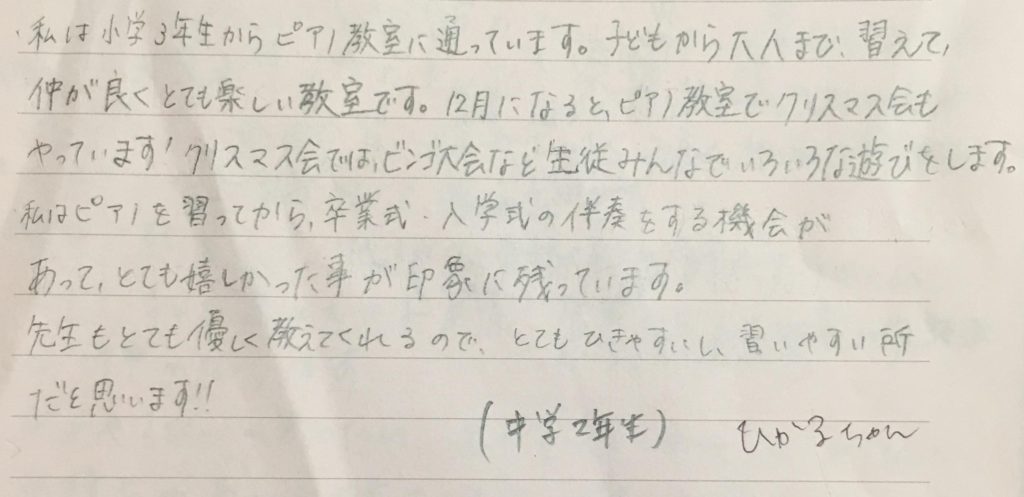 ・私は小学3年生からピアノ教室に通っています。子どもから大人まで、習えて、
仲が良くとても楽しい教室です。12月になると、ピアノ教室でクリスマス会も
やっています!クリスマス会では、ビンゴ大会など生従みんなでいろいろな遊びをします。
・私はピアノを習ってから、卒業式・入学式の伴奏をする機会が
あって、とても嬉しかった事が印象に残っています。
先生もとても優しく教えてくれるので、とてもひきやすいし、習いやすい所
だと思います!!
(中学2年生) ひかるちゃん